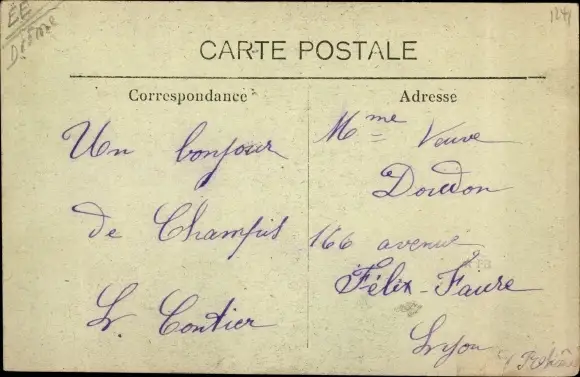 CARTE POSTALE
Correspondance
Un bonjour
de Champis
L. Contier
Adresse
Mme Veuve
Doudon
166 avenue
Félix-Faure
Lyon